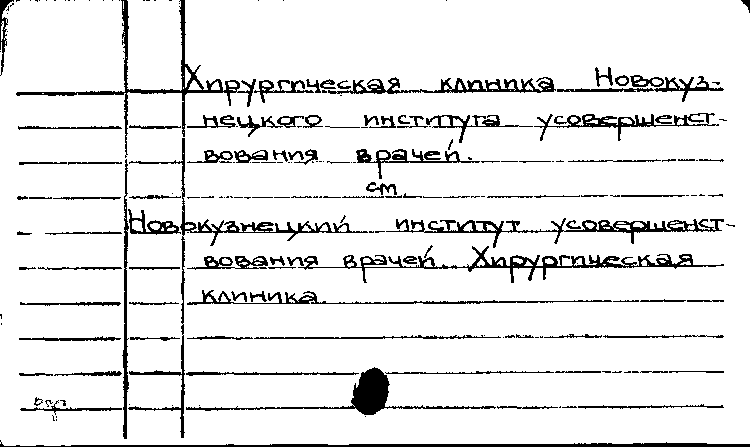 Хирургическая клиника Новокуз-
нецкого института усовершенст-
вования врачей.
см.
Новокузнецкий институт усовершенст-
вования врачей. Хирургическая
клиника.